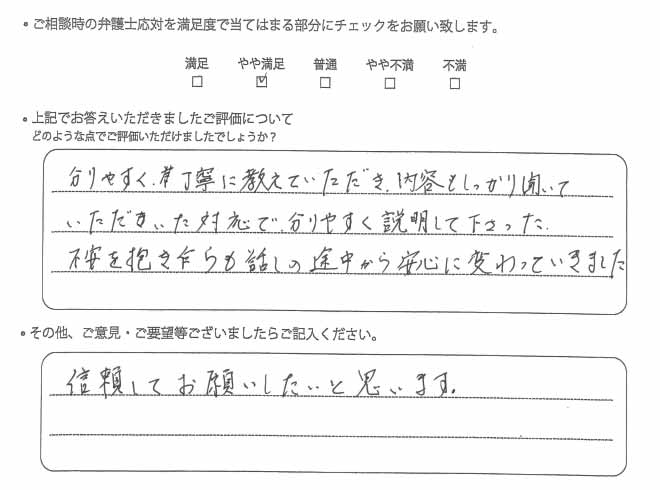 ・ご相談時の弁護士応対を満足度で当てはまる部分にチェックをお願い致します。
満足 やや満足 普通 やや不満 不満
□ ☑ □ □ □
・上記でお答えいただきましたご評価について
どのような点でご評価いただけましたでしょうか？
分りやすく、丁寧に教えていただき、内容もしっかり聞いて
いただいた対応で、分りやすく説明して下さった。
不安を抱き乍らも話しの途中から安心に変わっていきました
・その他、ご意見・ご要望等ございましたらご記入ください。
信頼してお願いしたいと思います。